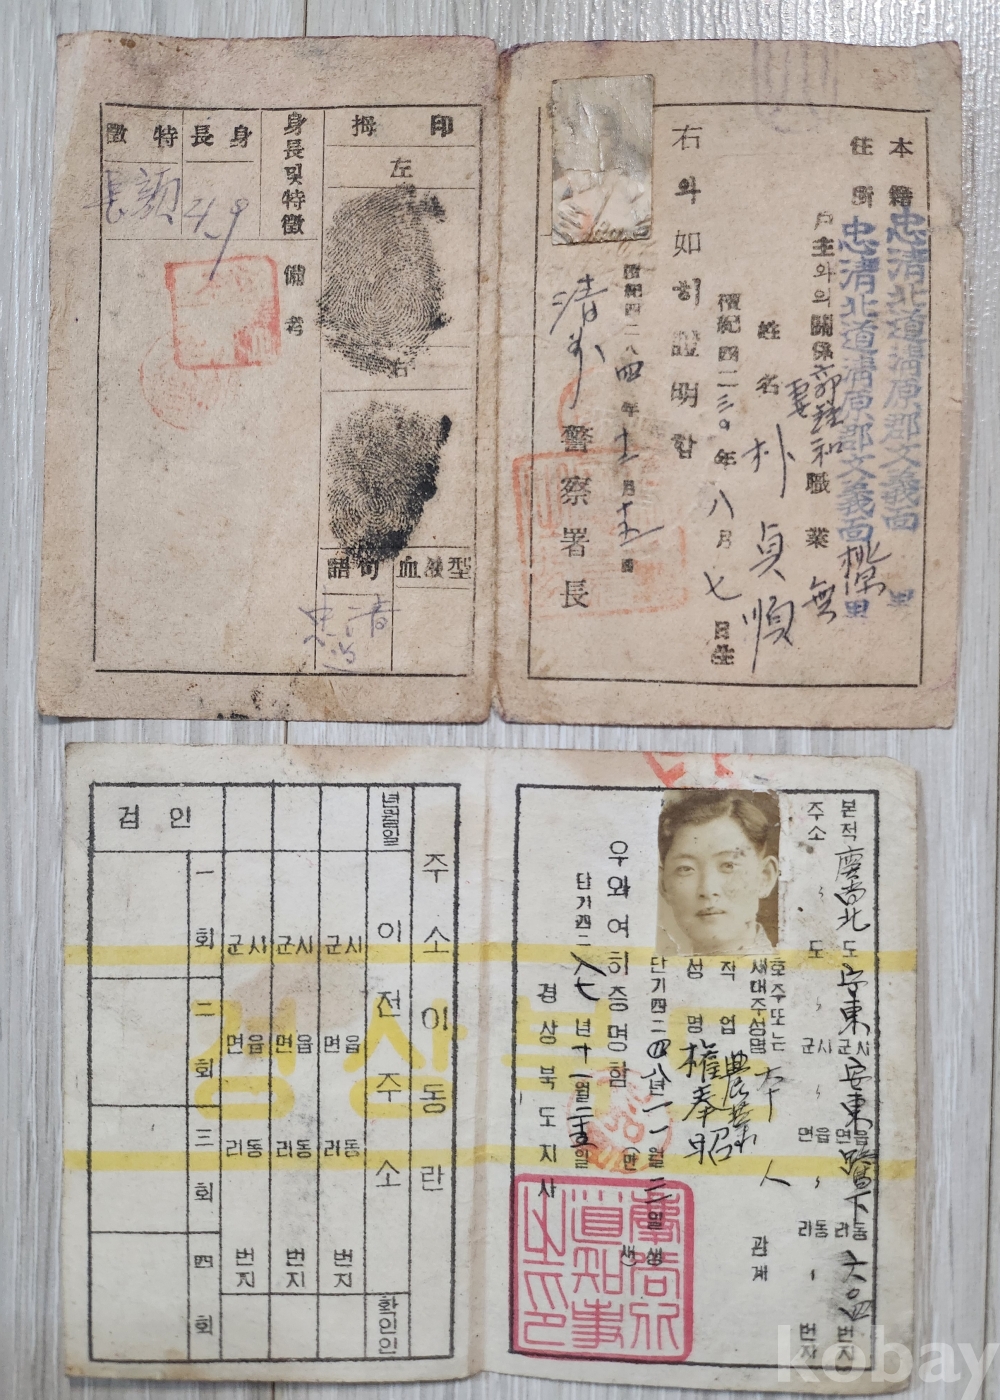 本籍 忠淸北道淸原郡文義面 里
住所 忠淸北道淸原郡文義面 桃原里
戶主와의關係 妻 職業 無
姓名 朴貞順
檀紀四二三〇年八月七日生
右와如히證明함
檀紀四二八四年 月 日
淸州警察署長
印 拇
左
右
型液血
句語
忠 淸
身長及特徵
身長
特徵
長顔
備考
본적 慶尚北도 安東군시 安東면읍 리동 번지
주소 〃 도 〃 군시 〃 면읍 〃 리동 〃 번지
호주또는
세대주성명 本人 관계
직업 農業
성명 權奉昭
단기四二四八년一一월二일생
(만 세)
우와여히증명함
단기四二八七년十一월二十五일
경상북도지사
慶尙北道知事之印
경상북
주소이동란
년월일 이전주소 확인인
시군 읍면 동리 번지
시군 읍면 동리 번지
시군 읍면 동리 번지
검인
一회 二회 三회 四회
kobay